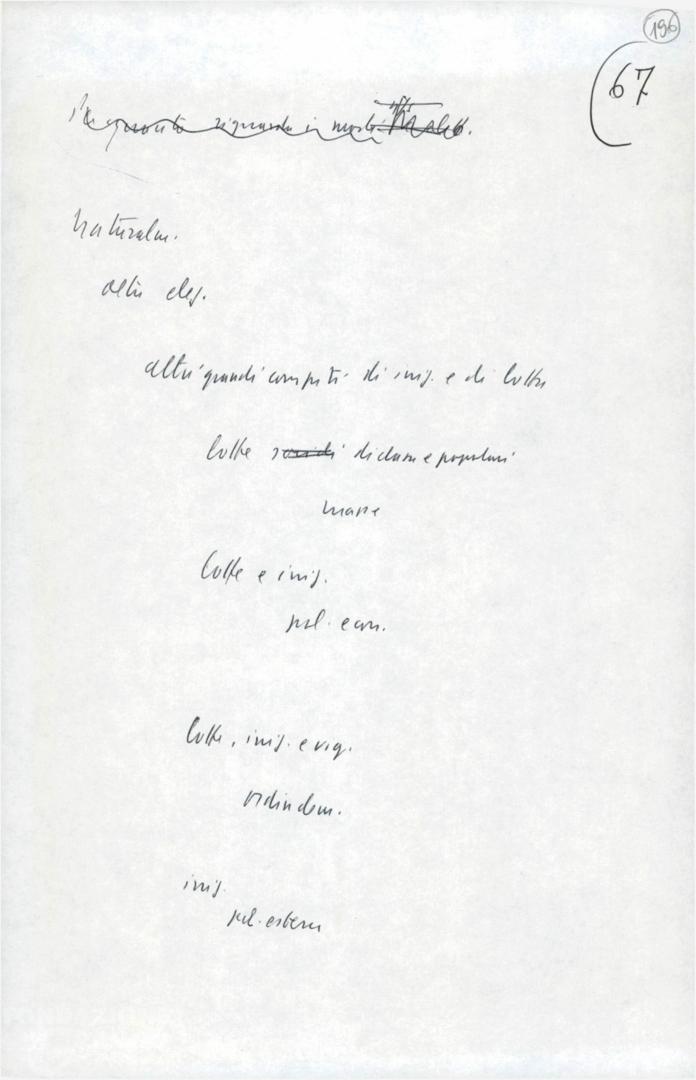 196
67
Per quanto riguarda i nostri
Naturalm.
altri eleg.
altri grandi compiti di iniz. e di lotta
lotte di classe e popolari
masse
lotte e iniz.
pol. econ.
lotte, iniz. e vig.
ord. in dem.
iniz.
pol. estera